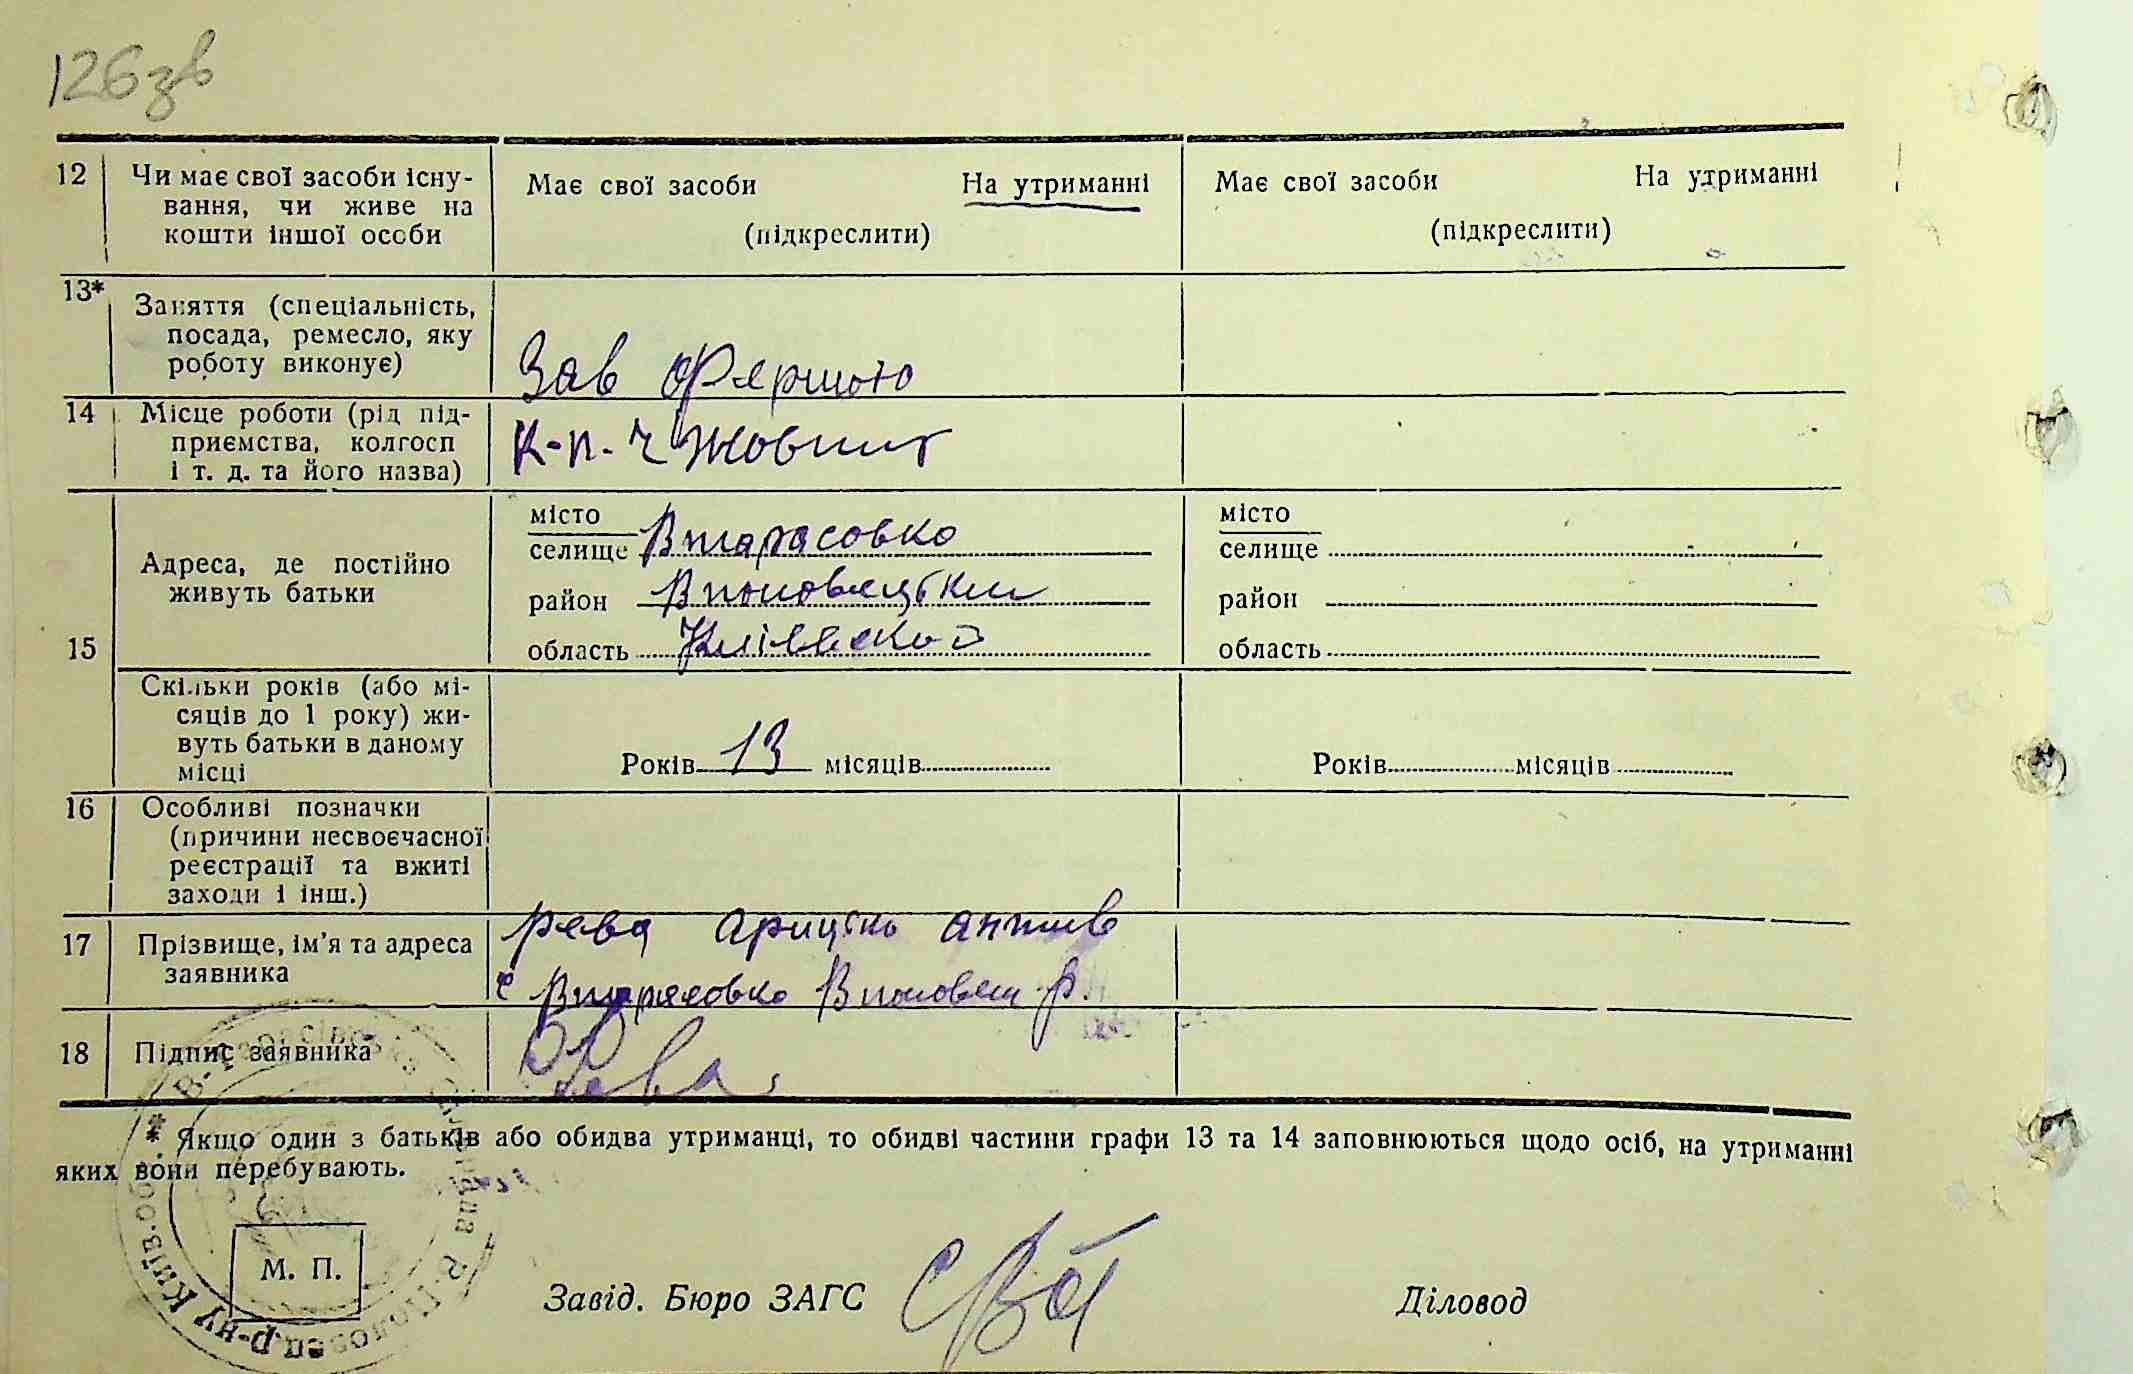 126 зв
12 Чи має свої засоби існу- Має свої засоби На утриманні Має свої засоби На утриманні
вання, чи живе на
кошти іншої особи (підкреслити) (підкреслити)
13* Заняття (спеціальність,
посада, ремесло, яку
роботу виконує) Зав Фермою
14 Місце роботи (рід під-
приємства, колгосп К-п-ч Жовтит
і т. д. та його назва)
місто місто
селище Втарасовко селище
Адреса, де постійно
живуть батьки район Вполовецькии район
15 область область
Скільки років (або мі-
сяців до 1 року) жи-
вуть батьки в даному
місці Років 13 місяців Років місяців
16 Особливі позначки
(причини несвоєчасної
реєстрації та вжиті
заходи і інш.)
17 Прізвище, ім'я та адреса рева
заявника с Втарасовко Вполовец р.
18 Підпис заявника Рева
* Якщо один з батьків або обидва утриманці, то обидві частини графи 13 та 14 заповнюються щодо осіб, на утриманні
яких вони перебувають.
М. П.
Завід. Бюро ЗАГС Діловод
В-Тарасівська Сільрада В-Половец. р-ну Київ. обл.